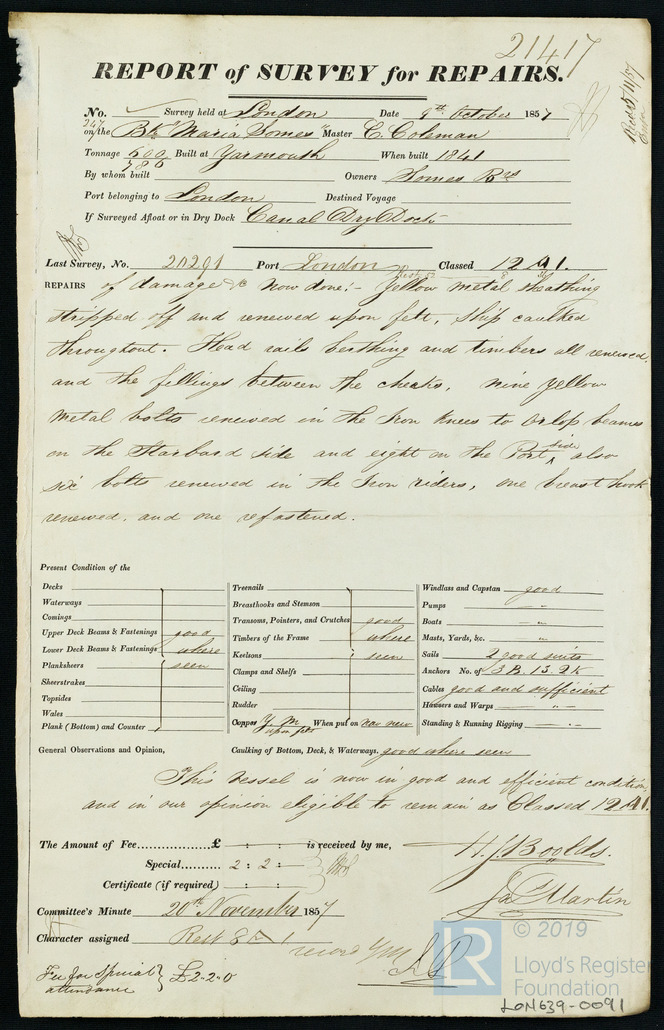 21417
REPORT of SURVEY for REPAIRS.
No. Survey held at London Date 9th October 1857
247
on the Bk "Maria Somes" Master C. Coleman
Tonnage 600 Built at Yarmouth When built 1841
786
By whom built Owners Somes Brs
Port belonging to London Destined Voyage
If Surveyed Afloat or in Dry Dock Canal Dry Dock
Last Survey, No. 20291 Port London Classed 12 A1.
REPAIRS of damage &c now done:- Yellow metal sheathing
stripped off and renewed upon felt, Ship caulked
throughout. Head rails berthing and timbers all renewed,
and the fillings between the cheeks, nine yellow
metal bolts renewed in the Iron Knees to Orlop beams
on the Starboard side and eight on the Port side also
six bolts renewed in the Iron riders, one breast hook
renewed, and one refastened.
Present Condition of the
Decks
Waterways
Comings
Upper Deck Beams & Fastenings good
Lower Deck Beams & Fastenings where
Planksheers seen
Sheerstrakes
Topsides
Wales
Plank (Bottom) and Counter
Treenails
Breasthooks and Stemson
Transoms, Pointers, and Crutches good
Timbers of the Frame where
Keelsons seen
Clamps and Shelfs
Ceiling
Rudder
Copper Y. M. upon felt When put on now new
Windlass and Capstan good
Pumps - -
Boats "
Masts, Yards, &c. "
Sails 2 good suits
Anchors No. of 3 B. 1 S. 2 K
Cables good and sufficient
Hawsers and Warps - " -
Standing & Running Rigging - " -
General Observations and Opinion, Caulking of Bottom, Deck, & Waterways. good where seen
This Vessel is now in good and efficient condition,
and in our opinion eligible to remain as Classed 12 A1.
The Amount of Fee.................£ - : - : is received by me,
Special.......... 2 : 2 : -
Certificate (if required) - : - : -
H. J. Boolds.
Jas Martin
Committee's Minute 20th November 1857
Character assigned
record YM
Fee for Special attendance } £2-2-0
LR
© 2019
Lloyd's Register
Foundation
LON639-0091